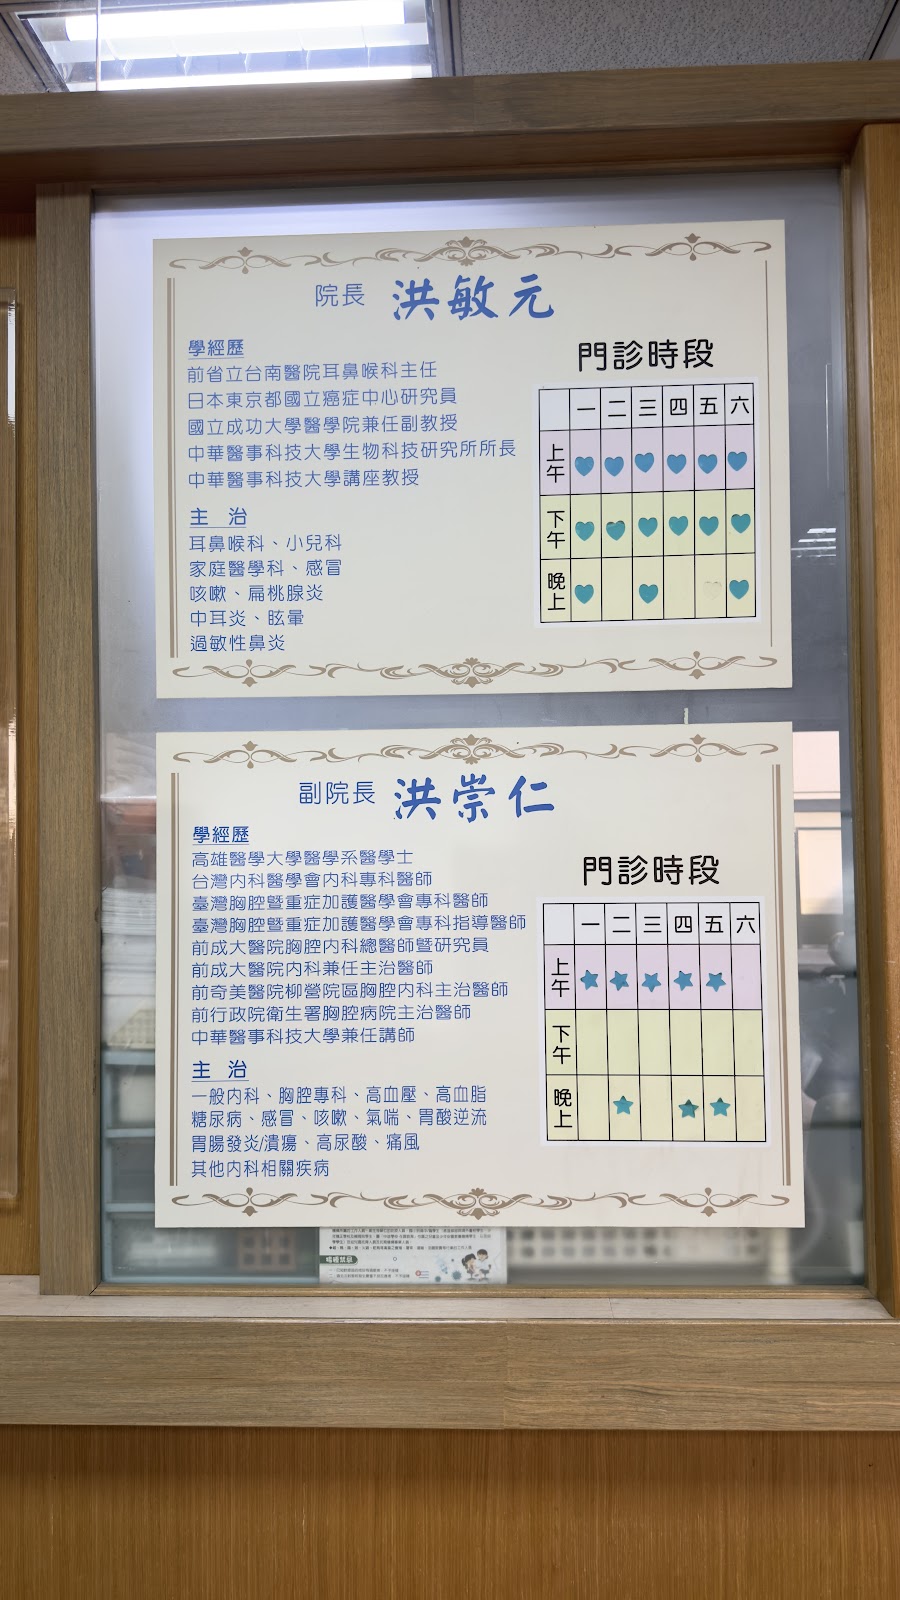 院長 洪敏元
學經歷
前省立台南醫院耳鼻喉科主任
日本東京都國立癌症中心研究員
國立成功大學醫學院兼任副教授
中華醫事科技大學生物科技研究所所長
中華醫事科技大學講座教授
主 治
耳鼻喉科、小兒科
家庭醫學科、感冒
咳嗽、扁桃腺炎
中耳炎、眩暈
過敏性鼻炎
門診時段
一 二 三 四 五 六
上午
下午
晚上
副院長 洪崇仁
學經歷
高雄醫學大學醫學系醫學士
台灣內科醫學會內科專科醫師
臺灣胸腔暨重症加護醫學會專科醫師
臺灣胸腔暨重症加護醫學會專科指導醫師
前成大醫院胸腔內科總醫師暨研究員
前成大醫院內科兼任主治醫師
前奇美醫院柳營院區胸腔內科主治醫師
前行政院衛生署胸腔病院主治醫師
中華醫事科技大學兼任講師
主 治
一般內科、胸腔專科、高血壓、高血脂
糖尿病、感冒、咳嗽、氣喘、胃酸逆流
胃腸發炎/潰瘍、高尿酸、痛風
其他內科相關疾病
門診時段
一 二 三 四 五 六
上午
下午
晚上